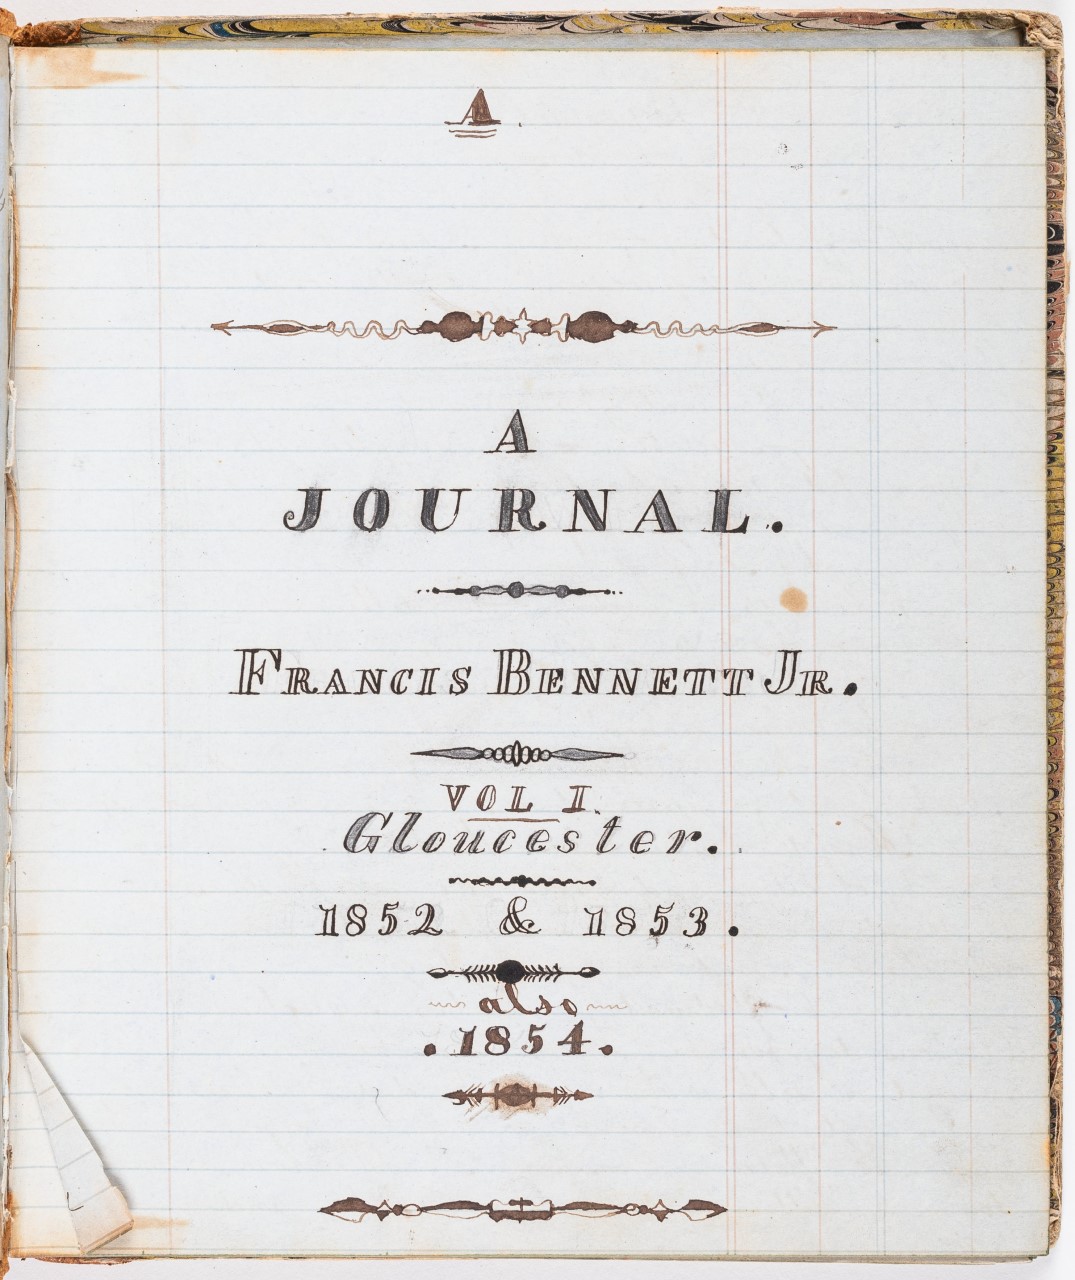 A
A
JOURNAL.
FRANCIS BENNETT JR.
VOL I.
Gloucester.
1852 & 1853.
also
.1854.